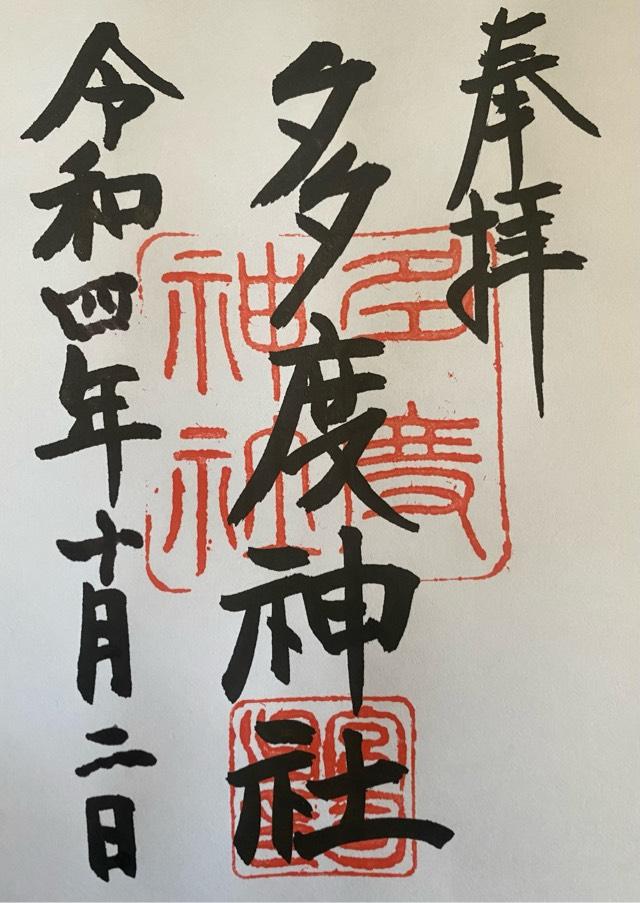 奉拝
多度神社
多度神社
令和四年十月二日